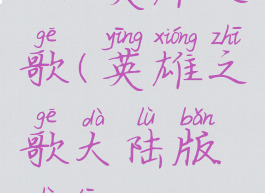 gē yīng xióng zhī
歌(英雄之
gē dà lù bǎn
歌大陆版